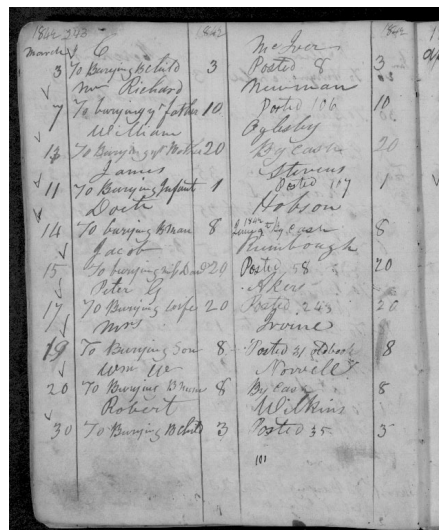 1842 243 1842 1842
March J C McIver
3 To Burying B Child 3 Posted 8 3
Mrs Richard Newman
7 To burying yr father 10 Posted 106 10
William Oglesby
13 To Burying yr Mother 20 By Cash 20
James Stevens
11 To Burying Infant 1 Posted 107 1
Hobson
14 To burying Bman 8 By Cash 8
Jacob Rumbough
15 To burying 20 Posted 58 20
Peter G Akers
17 To Burying Wife 20 Posted 243 20
Mrs Irvine
19 To Burying Son 8 Posted 31 old book 8
Wm W Norvell
20 To Burying 8 By Cash 8
Robert Wilkins
30 To Burying B Child 3 Posted 35 3
101